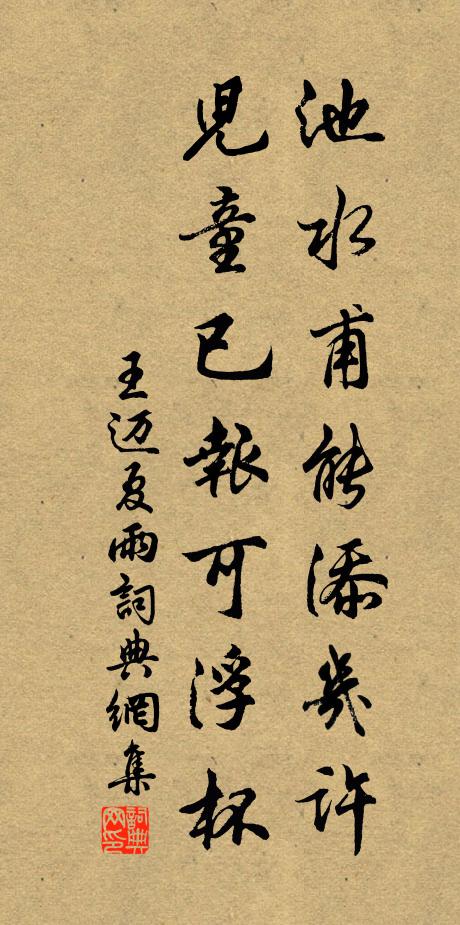 池水甫能添幾許
兒童已報可浮杯
王迈夏雨詞典網集
詞典網印